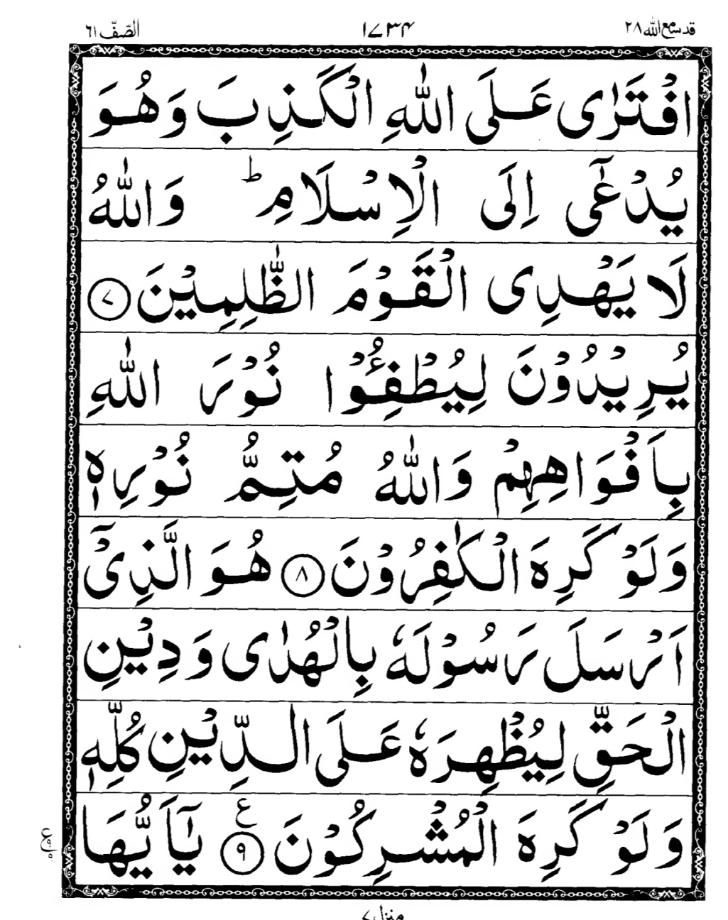 قد سمع الله ٢٨ ١٧٣٤ الصّفّ ٦١
افْتَرٰى عَلَى اللّٰهِ الْكَذِبَ وَهُوَ
يُدْعٰٓى اِلَى الْاِسْلَامِ ؕ وَاللّٰهُ
لَا يَهْدِى الْقَوْمَ الظّٰلِمِيْنَ ۷
يُرِيْدُوْنَ لِيُطْفِـُٔوْا نُوْرَ اللّٰهِ
بِاَفْوَاهِهِمْ وَاللّٰهُ مُتِمُّ نُوْرِهٖ
وَلَوْ كَرِهَ الْكٰفِرُوْنَ ۸ هُوَ الَّذِىْۤ
اَرْسَلَ رَسُوْلَهٗ بِالْهُدٰى وَدِيْنِ
الْحَقِّ لِيُظْهِرَهٗ عَلَى الدِّيْنِ كُلِّهٖ
وَلَوْ كَرِهَ الْمُشْرِكُوْنَ ۹ ع يٰۤاَيُّهَا
منزل ٧